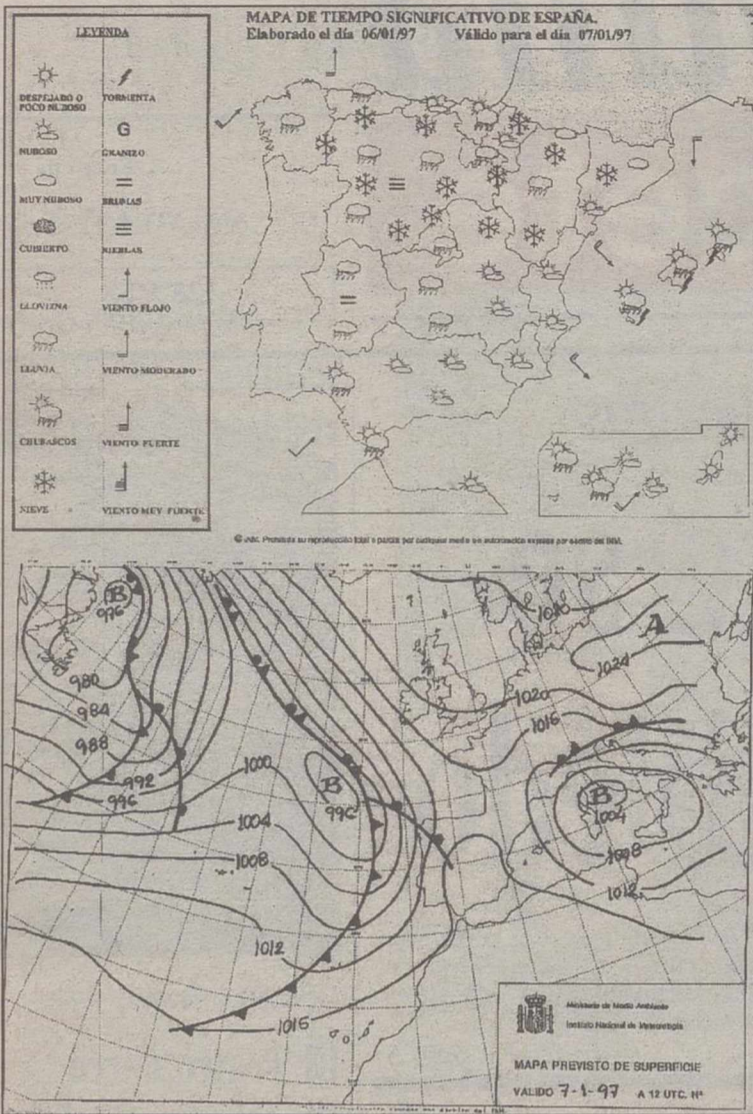 MAPA DE TIEMPO SIGNIFICATIVO DE ESPAÑA.
Elaborado el día 06/01/97 Válido para el día 07/01/97
LEYENDA
DESPEJADO O
POCO NUBOSO
TORMENTA
NUBOSO
G
GRANIZO
MUY NUBOSO
BRUMAS
CUBIERTO
NIEBLAS
LLOVIZNA
VIENTO FLOJO
LLUVIA
VIENTO MODERADO
CHUBASCOS
VIENTO FUERTE
NIEVE
VIENTO MUY FUERTE
Prohibida su reproducción total o parcial por cualquier medio sin autorización expresa por escrito del INM.
B
976
980
984
988
992
996
1000
B
1004
1008
1012
1016
1020
A
1024
1020
1016
B
1004
1008
1012
Ministerio de Medio Ambiente
Instituto Nacional de Meteorología
MAPA PREVISTO DE SUPERFICIE
VALIDO 7-1-97 A 12 UTC. Hª